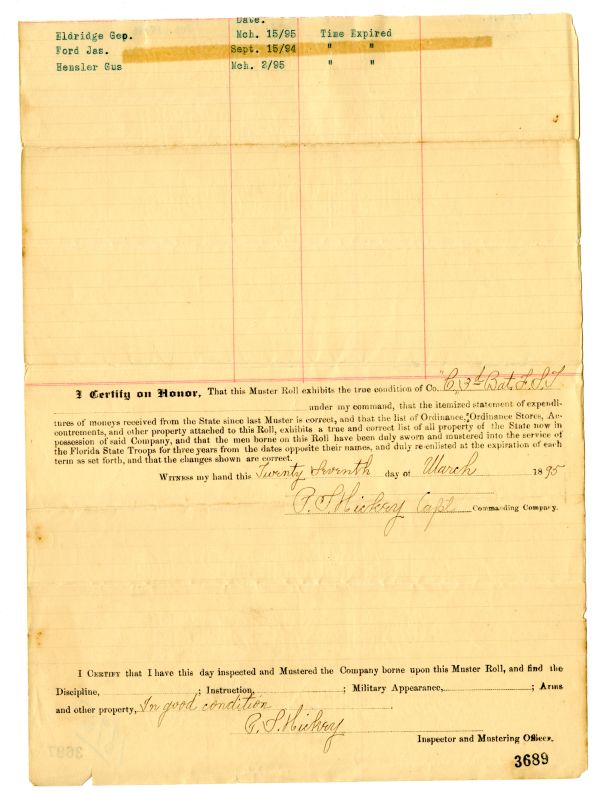 Date.
Eldridge Geo. Mch. 15/95 Time Expired
Ford Jas. Sept. 15/94 " "
Hensler Gus Mch. 2/95 " "
I Certify on Honor, That this Muster Roll exhibits the true condition of Co. "C," 3d Bat. F. S. T
under my command, that the itemized statement of expendi-
tures of moneys received from the State since last Muster is correct, and that the list of Ordinance, Ordinance Stores, Ac-
coutrements, and other property attached to this Roll, exhibits a true and correct list of all property of the State now in
possession of said Company, and that the men borne on this Roll have been duly sworn and mustered into the service of
the Florida State Troops for three years from the dates opposite their names, and duly re-enlisted at the expiration of each
term as set forth, and that the changes shown are correct.
Witness my hand this Twenty Seventh day of March 1895
Hickey Capt. Commanding Company.
I Certify that I have this day inspected and Mustered the Company borne upon this Muster Roll, and find the
Discipline, ; Instruction, ; Military Appearance, ; Arms
and other property, In good condition
Hickey
Inspector and Mustering Officer.
3689